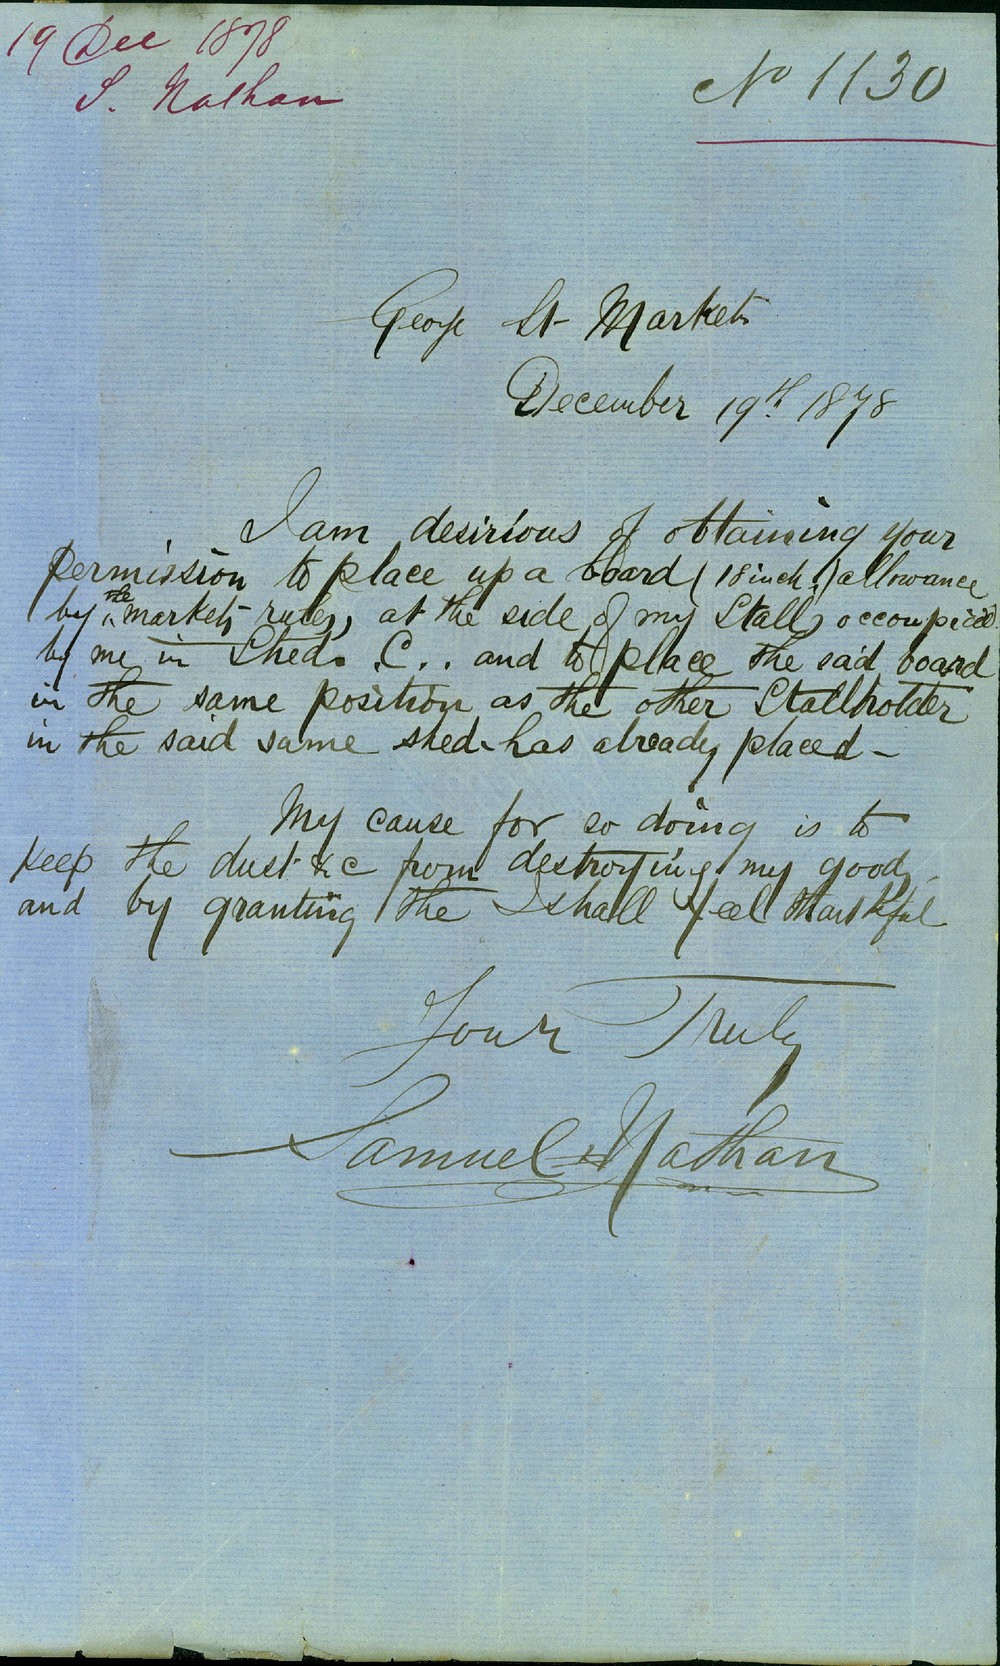 19 Dec 1878
S. Nathan
No 1130
George St Markets
December 19th 1878
I am desirious of obtaining your
permission to place up a board (18 inch.) allowance
by the markets rules, at the side of my Stall, occoupied
by me in Shed. C.. and to place the said board
in the same position as the other Stallholder
in the said same shed has already placed -
My cause for so doing is to
keep the dust &c from destroying my goods,
and by granting the I shall feel thankful
Your Truly
Samuel Nathan